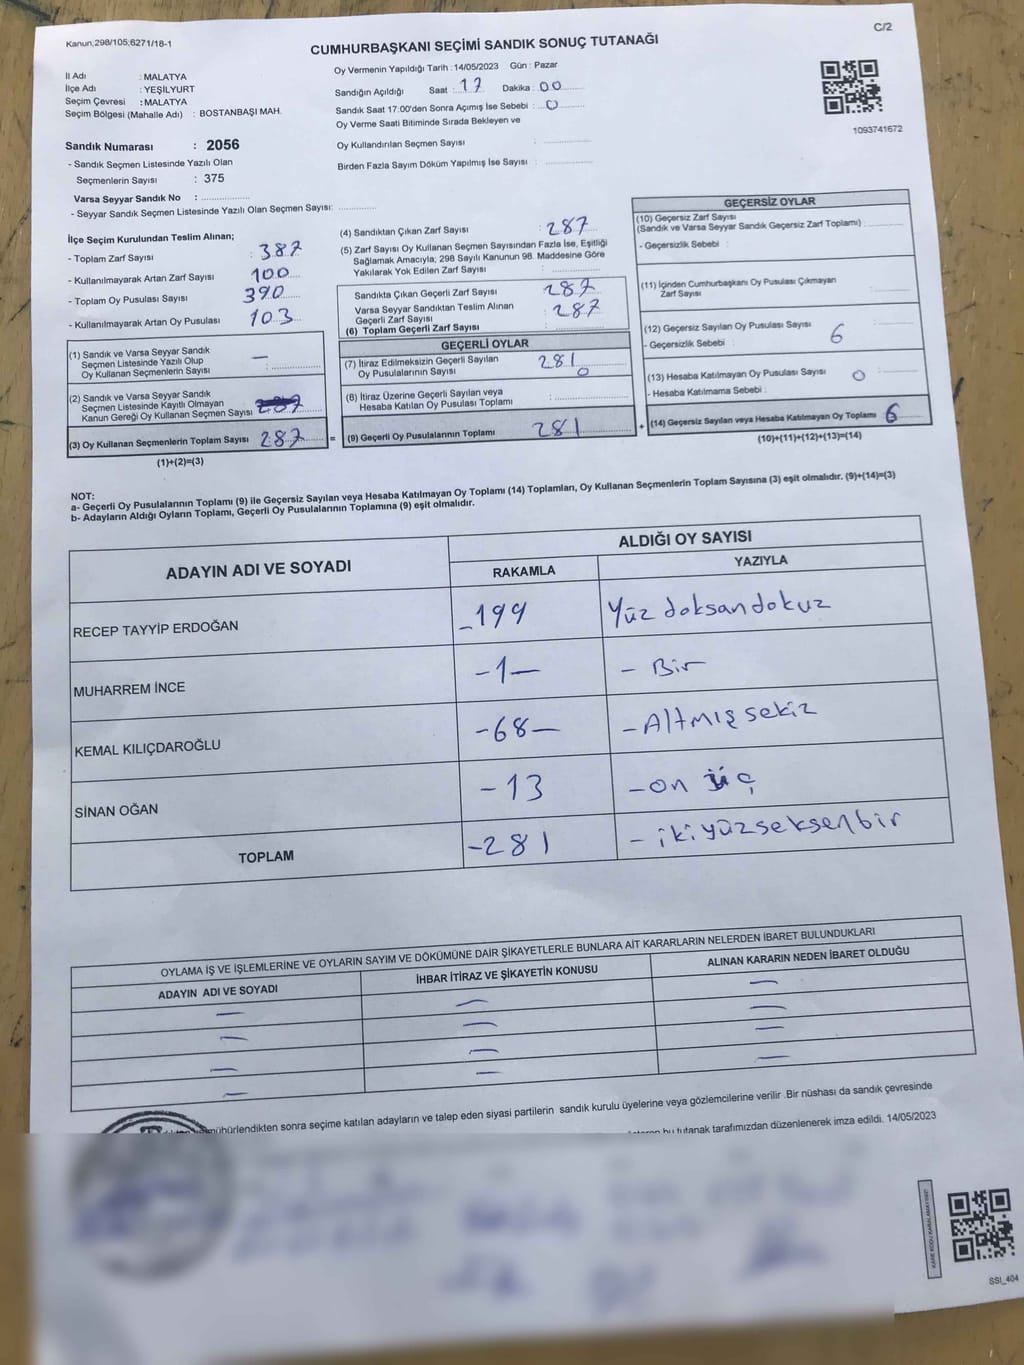 Kanun;298/105;6271/18-1
C/2
CUMHURBAŞKANI SEÇİMİ SANDIK SONUÇ TUTANAĞI
İl Adı : MALATYA
İlçe Adı : YEŞİLYURT
Seçim Çevresi : MALATYA
Seçim Bölgesi (Mahalle Adı) : BOSTANBAŞI MAH.
Oy Vermenin Yapıldığı Tarih : 14/05/2023 Gün : Pazar
Sandığın Açıldığı Saat : 17 Dakika : 00
Sandık Saat 17:00'den Sonra Açımış İse Sebebi : 0
Oy Verme Saati Bitiminde Sırada Bekleyen ve
Oy Kullandırılan Seçmen Sayısı :
Birden Fazla Sayım Döküm Yapılmış İse Sayısı :
1093741672
Sandık Numarası : 2056
- Sandık Seçmen Listesinde Yazılı Olan
Seçmenlerin Sayısı : 375
Varsa Seyyar Sandık No :
- Seyyar Sandık Seçmen Listesinde Yazılı Olan Seçmen Sayısı:
İlçe Seçim Kurulundan Teslim Alınan;
- Toplam Zarf Sayısı : 387
- Kullanılmayarak Artan Zarf Sayısı 100
- Toplam Oy Pusulası Sayısı 390
- Kullanılmayarak Artan Oy Pusulası 103
(1) Sandık ve Varsa Seyyar Sandık
Seçmen Listesinde Yazılı Olup
Oy Kullanan Seçmenlerin Sayısı : —
(2) Sandık ve Varsa Seyyar Sandık
Seçmen Listesinde Kayıtlı Olmayan
Kanun Gereği Oy Kullanan Seçmen Sayısı
(3) Oy Kullanan Seçmenlerin Toplam Sayısı 287
(1)+(2)=(3)
(4) Sandıktan Çıkan Zarf Sayısı : 287
(5) Zarf Sayısı Oy Kullanan Seçmen Sayısından Fazla İse, Eşitliği
Sağlamak Amacıyla; 298 Sayılı Kanunun 98. Maddesine Göre
Yakılarak Yok Edilen Zarf Sayısı :
Sandıkta Çıkan Geçerli Zarf Sayısı 287
Varsa Seyyar Sandıktan Teslim Alınan
Geçerli Zarf Sayısı 287
(6) Toplam Geçerli Zarf Sayısı :
GEÇERLİ OYLAR
(7) İtiraz Edilmeksizin Geçerli Sayılan
Oy Pusulalarının Sayısı : 281
0
(8) İtiraz Üzerine Geçerli Sayılan veya
Hesaba Katılan Oy Pusulası Toplamı :
= (9) Geçerli Oy Pusulalarının Toplamı 281
GEÇERSİZ OYLAR
(10) Geçersiz Zarf Sayısı
(Sandık ve Varsa Seyyar Sandık Geçersiz Zarf Toplamı) :
- Geçersizlik Sebebi :
(11) İçinden Cumhurbaşkanı Oy Pusulası Çıkmayan
Zarf Sayısı :
(12) Geçersiz Sayılan Oy Pusulası Sayısı :
- Geçersizlik Sebebi : 6
(13) Hesaba Katılmayan Oy Pusulası Sayısı 0 :
- Hesaba Katılmama Sebebi :
+ (14) Geçersiz Sayılan veya Hesaba Katılmayan Oy Toplamı 6
(10)+(11)+(12)+(13)=(14)
NOT:
a- Geçerli Oy Pusulalarının Toplamı (9) ile Geçersiz Sayılan veya Hesaba Katılmayan Oy Toplamı (14) Toplamları, Oy Kullanan Seçmenlerin Toplam Sayısına (3) eşit olmalıdır. (9)+(14)=(3)
b- Adayların Aldığı Oyların Toplamı, Geçerli Oy Pusulalarının Toplamına (9) eşit olmalıdır.
ADAYIN ADI VE SOYADI
ALDIĞI OY SAYISI
RAKAMLA YAZIYLA
RECEP TAYYİP ERDOĞAN -199 Yüz doksan dokuz
MUHARREM İNCE -1- - Bir
KEMAL KILIÇDAROĞLU -68- -Altmış sekiz
SİNAN OĞAN -13 -on üç
TOPLAM -281 - iki yüz seksen bir
OYLAMA İŞ VE İŞLEMLERİNE VE OYLARIN SAYIM VE DÖKÜMÜNE DAİR ŞİKAYETLERLE BUNLARA AİT KARARLARIN NELERDEN İBARET BULUNDUKLARI
ADAYIN ADI VE SOYADI İHBAR İTİRAZ VE ŞİKAYETİN KONUSU ALINAN KARARIN NEDEN İBARET OLDUĞU
— — —
— — —
— — —
— — —
mühürlendikten sonra seçime katılan adayların ve talep eden siyasi partilerin sandık kurulu üyelerine veya gözlemcilerine verilir .Bir nüshası da sandık çevresinde
bu tutanak tarafımızdan düzenlenerek imza edildi. 14/05/2023
SSI_404